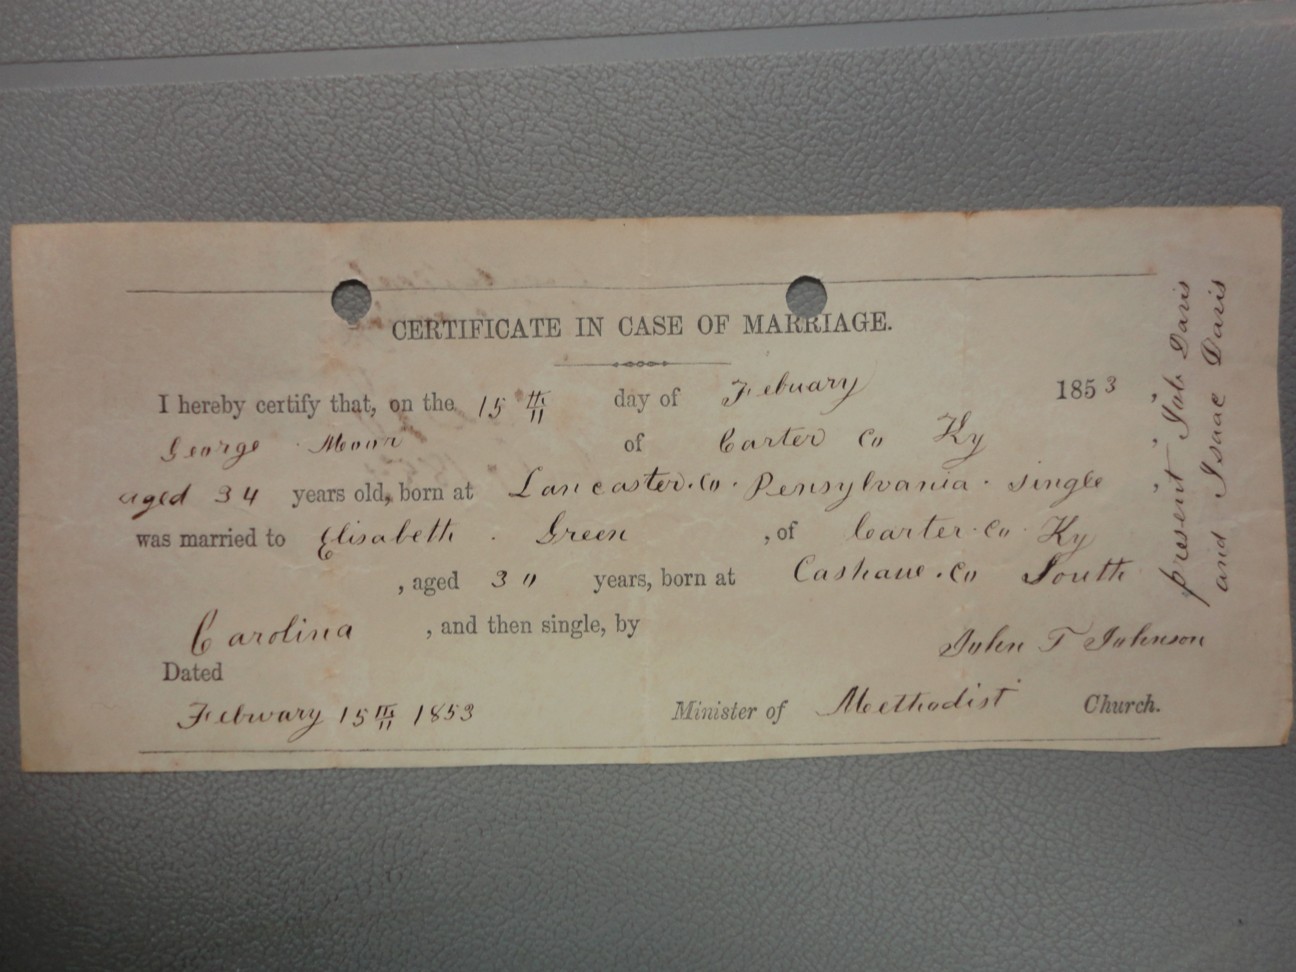 CERTIFICATE IN CASE OF MARRIAGE.
I hereby certify that, on the 15th day of Febuary 1853
George Moor of Carter Co Ky
aged 34 years old, born at Lancaster.Co. Pensylvania. single
was married to Elisabeth. Green , of Carter.Co. Ky
, aged 30 years, born at Co South
Carolina , and then single, by
John T Johnson
Dated
Febuary 15th 1853 Minister of Methodist Church.
present Job Davis
and Isaac Davis